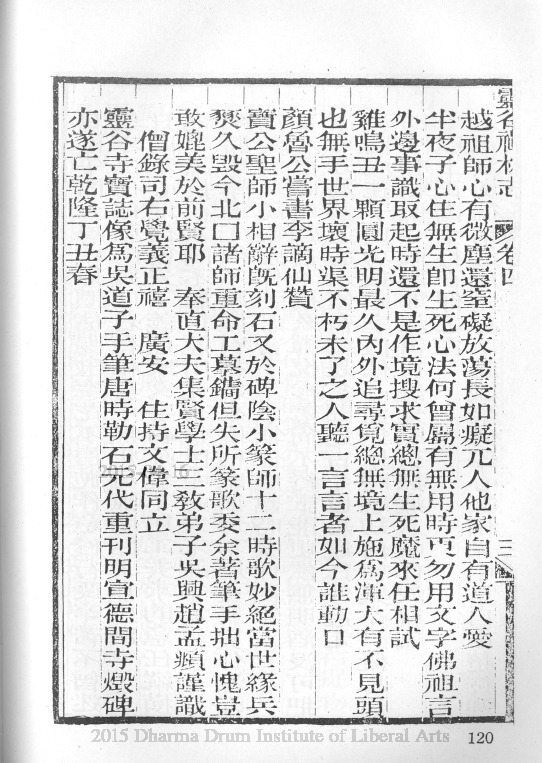 靈谷禪林志 卷四 三
越祖師心有微塵還窒礙放蕩長如癡兀人他家自有道人愛
半夜子心住無生卽生死心法何曾屬有無用時便勿用文字佛祖言
外邊事識取起時還不是作境搜求實總無生死魔來任相試
雞鳴丑一顆圓光明最久內外追尋覓總無境上施爲渾大有不見頭
也無手世界壞時渠不朽未了之人聽一言言者如今誰動口
顏魯公嘗書李謫仙贊
寶公聖師小相辭旣刻石又於碑陰小篆師十二時歌妙絕當世緣兵
燹久毀今北口諸師重命工摹鐫但失所篆歌委余著筆手拙心愧豈
敢媲美於前賢耶 奉直大夫集賢學士三敎弟子吳興趙孟頫謹識
僧錄司右覺義正禧 廣安 住持文偉同立
靈谷寺寶誌像爲吳道子手筆唐時勒石元代重刊明宣德間寺燬碑
亦遂亡乾隆丁丑春
2015 Dharma Drum Institute of Liberal Arts
120